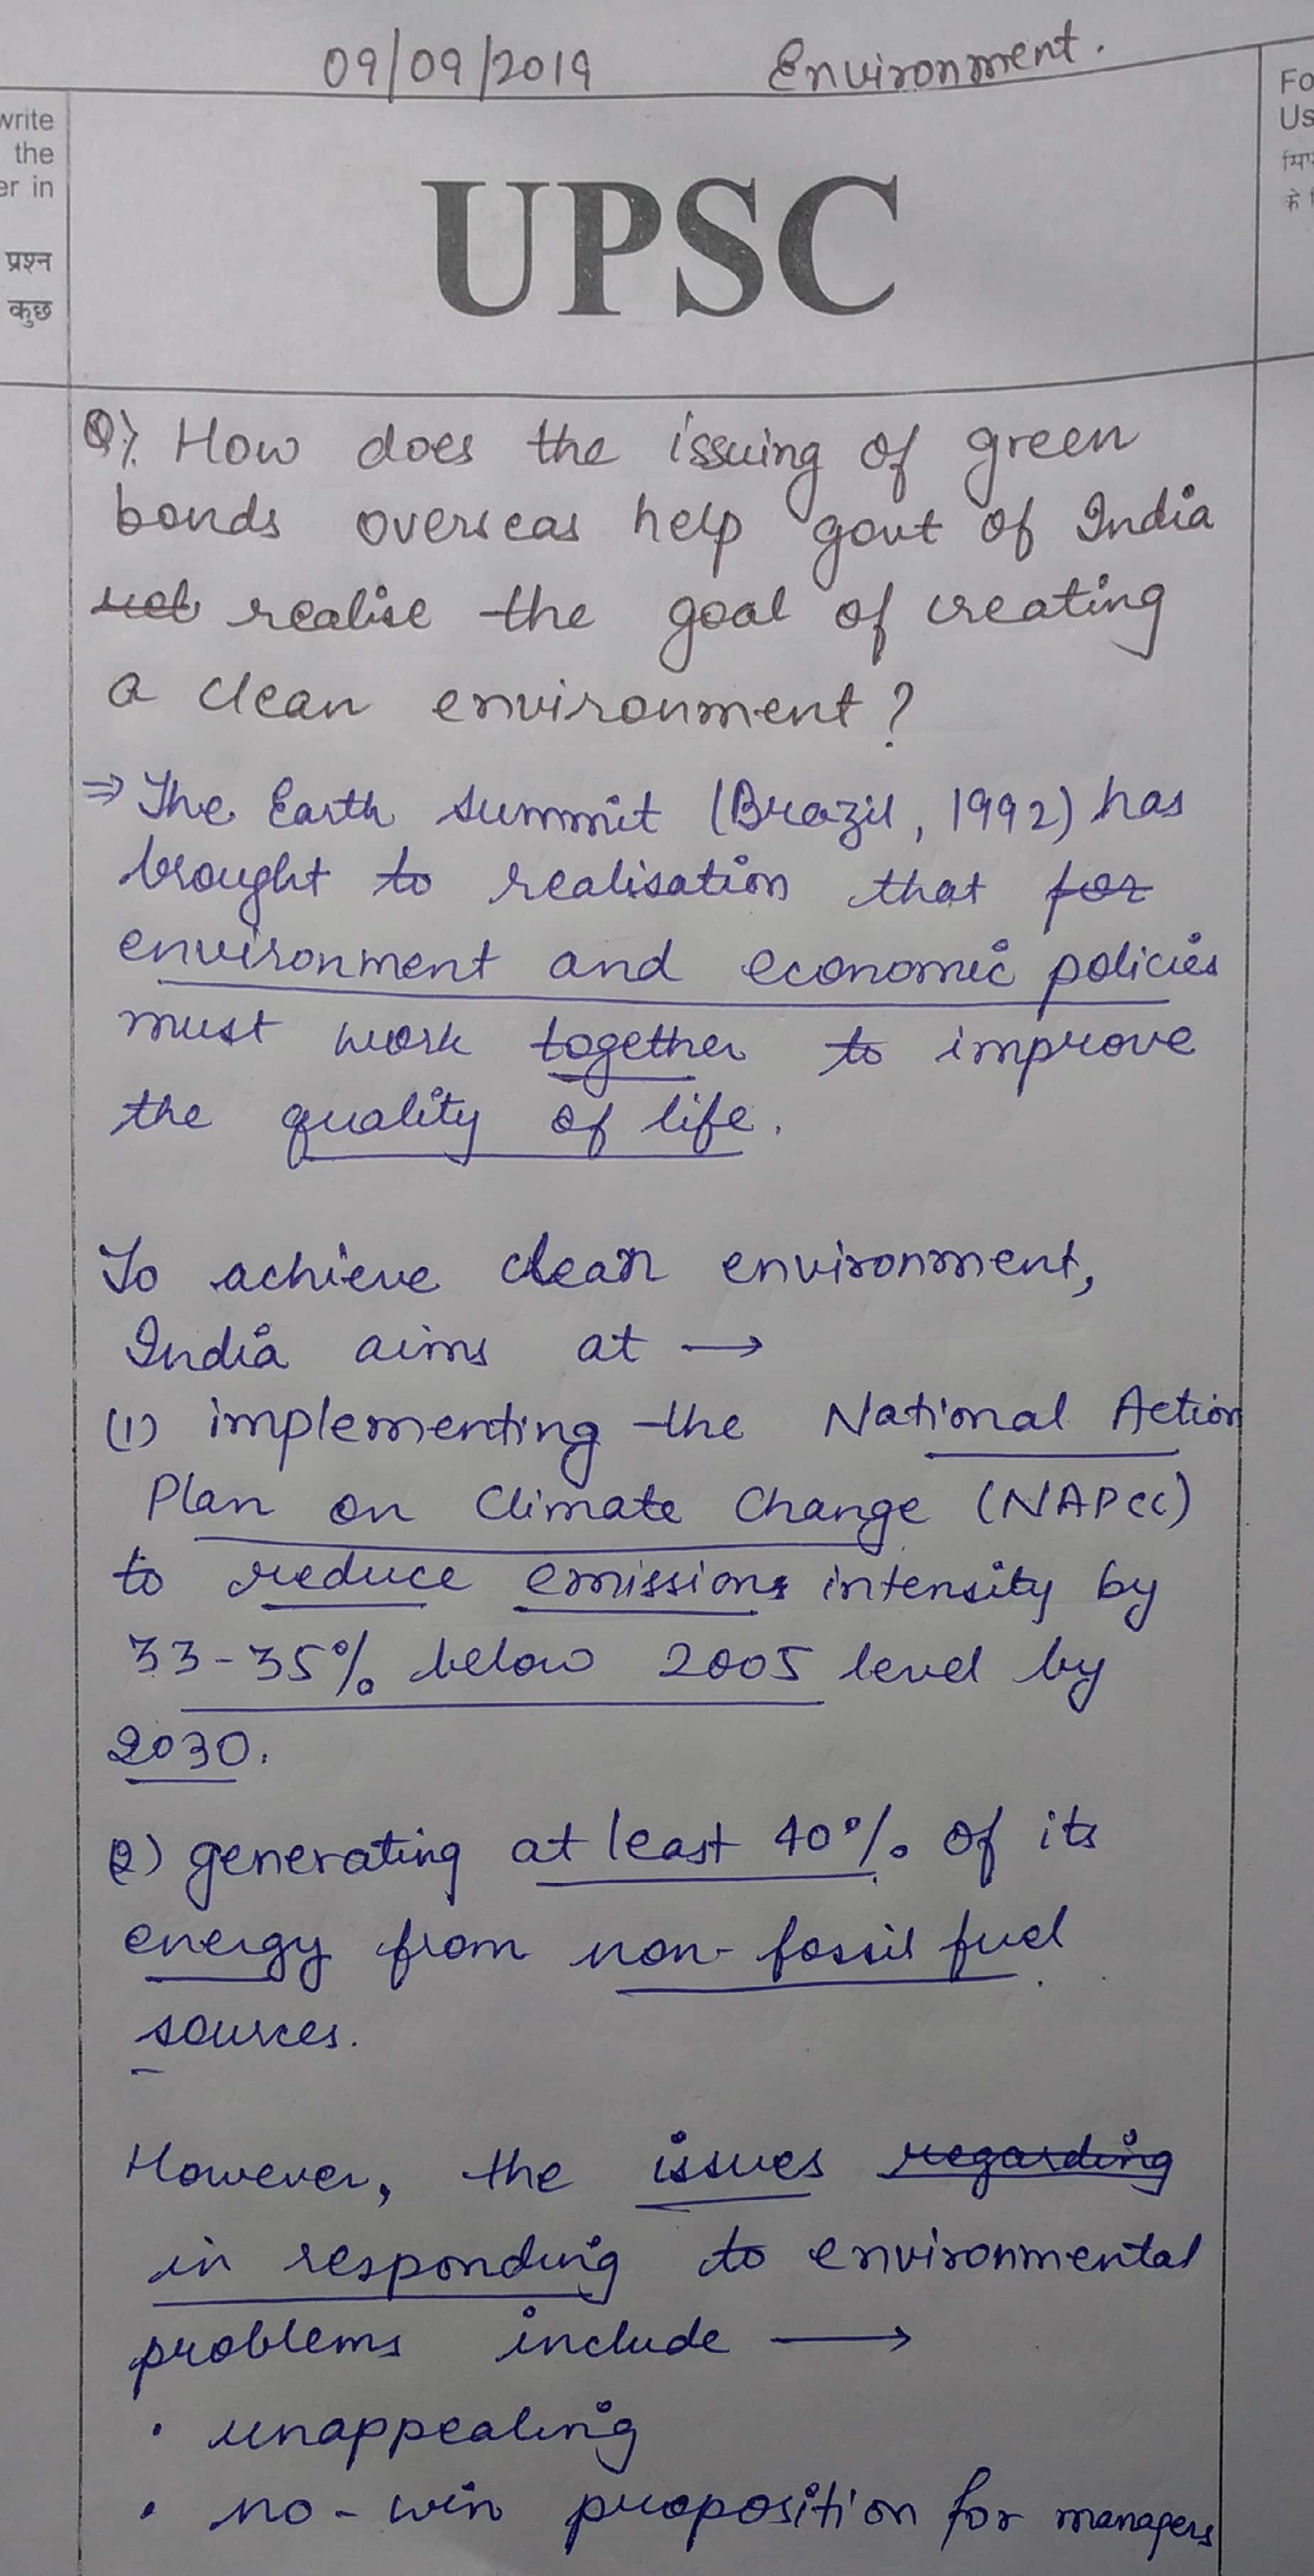 09/09/2019 Environment.
write
the
er in
प्रश्न
कुछ
Fo
Us
UPSC
Q). How does the issuing of green
bonds overseas help govt of India
realise the goal of creating
a clean environment?
⇒ The Earth Summit (Brazil, 1992) has
brought to realisation that for
environment and economic policies
must work together to improve
the quality of life.
To achieve clean environment,
India aims at →
(1) implementing the National Action
Plan on Climate Change (NAPCC)
to reduce emissions intensity by
33-35% below 2005 level by
2030.
(2) generating at least 40% of its
energy from non-fossil fuel
sources.
However, the issues regarding
in responding to environmental
problems include →
• unappealing
• no-win proposition for managers